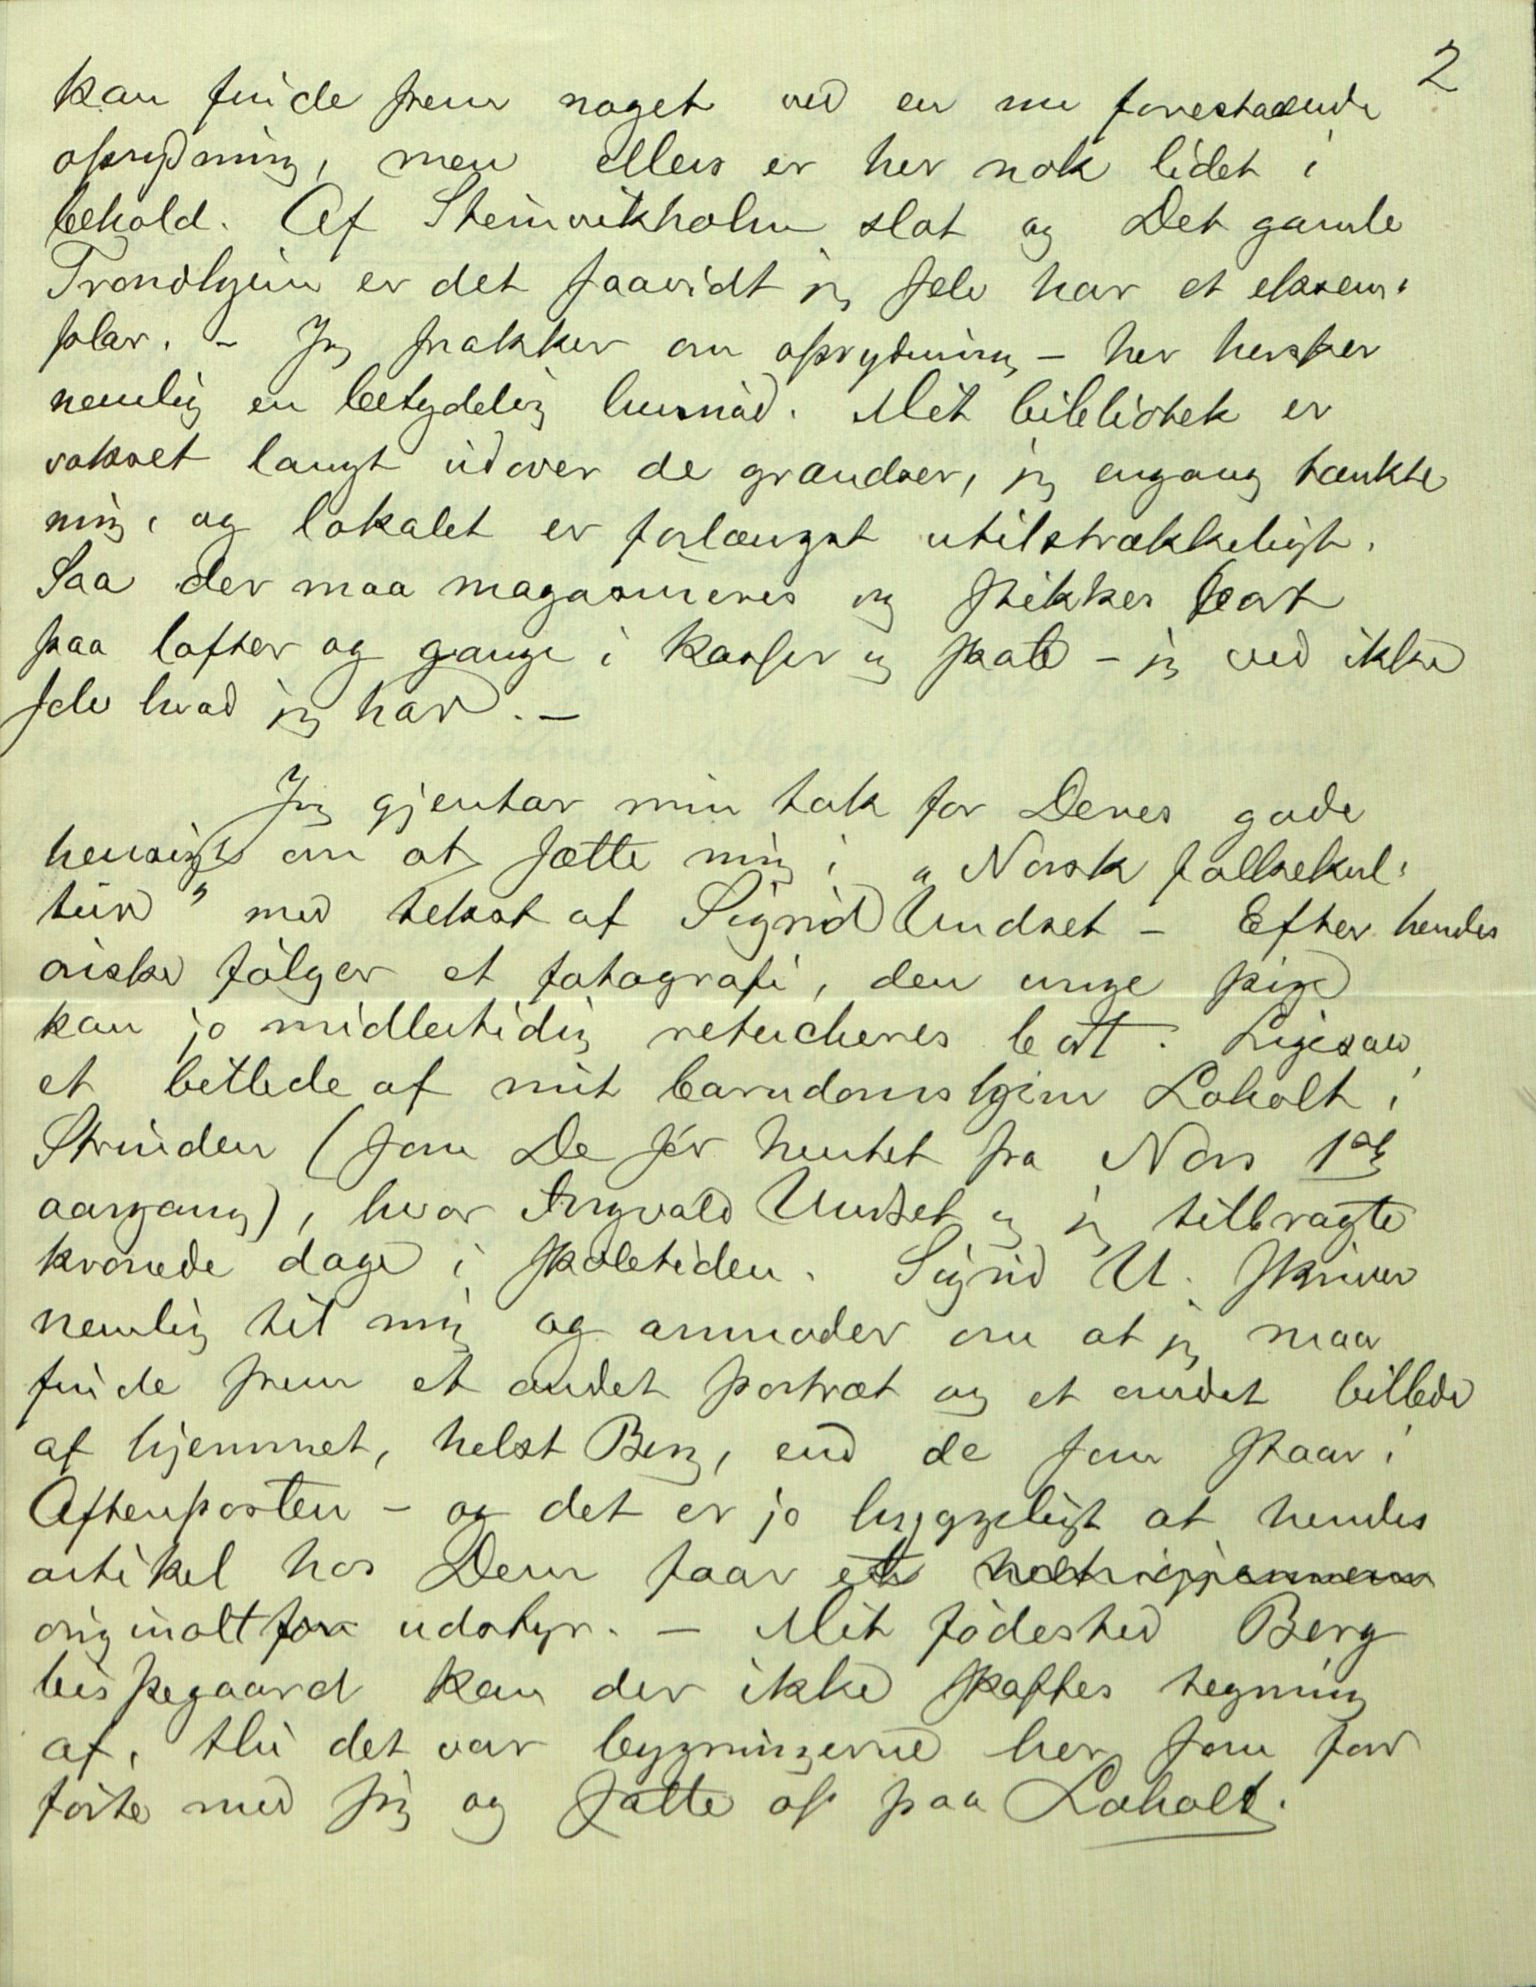 2
kan finde frem noget ved en nu forestaaende
oprydning, men ellers er her nok lidet i
behold. Af Steinvikholm slot og Det gamle
Trondhjem er det saavidt jeg selv har et eksem-
plar. - Jeg snakker om oprydning - her hersker
nemlig en betydelig husnød. Mit bibliotek er
vokset langt udover de grændser, jeg engang tænkte
mig, og lokalet er forlængst utilstrækkeligt.
Saa der maa magasineres og stikkes bort
paa lofter og gange i kasser og skabe - jeg ved ikke
selv hvad jeg har. -
Jeg gjentar min tak for Deres gode
hensigt om at sætte mig i "Norsk folkekul-
tur" med tekst af Sigrid Undset - Efter hendes
ønske følger et fotografi, den unge pige
kan jo midlertidig retucheres bort. Ligesaa
et billede af mit barndomshjem Loholt i
Strinden (som De før hentet fra Nors 1ste
aargang), hvor Ingvald Undset og jeg tilbragte
kronede dage i skoletiden. Sigrid U. skriver
nemlig til mig og anmoder om at jeg maa
finde frem et andet portræt og et andet billede
af hjemmet, helst Berg, end de som staar i
Aftenposten - og det er jo hyggeligt at hendes
artikel hos Dem faar et
originalt for udstyr. - Mit fødested Berg
bispegaard kan der ikke skaffes tegning
af, thi det var bygningerne her som far
førte med sig og satte op paa Loholt.